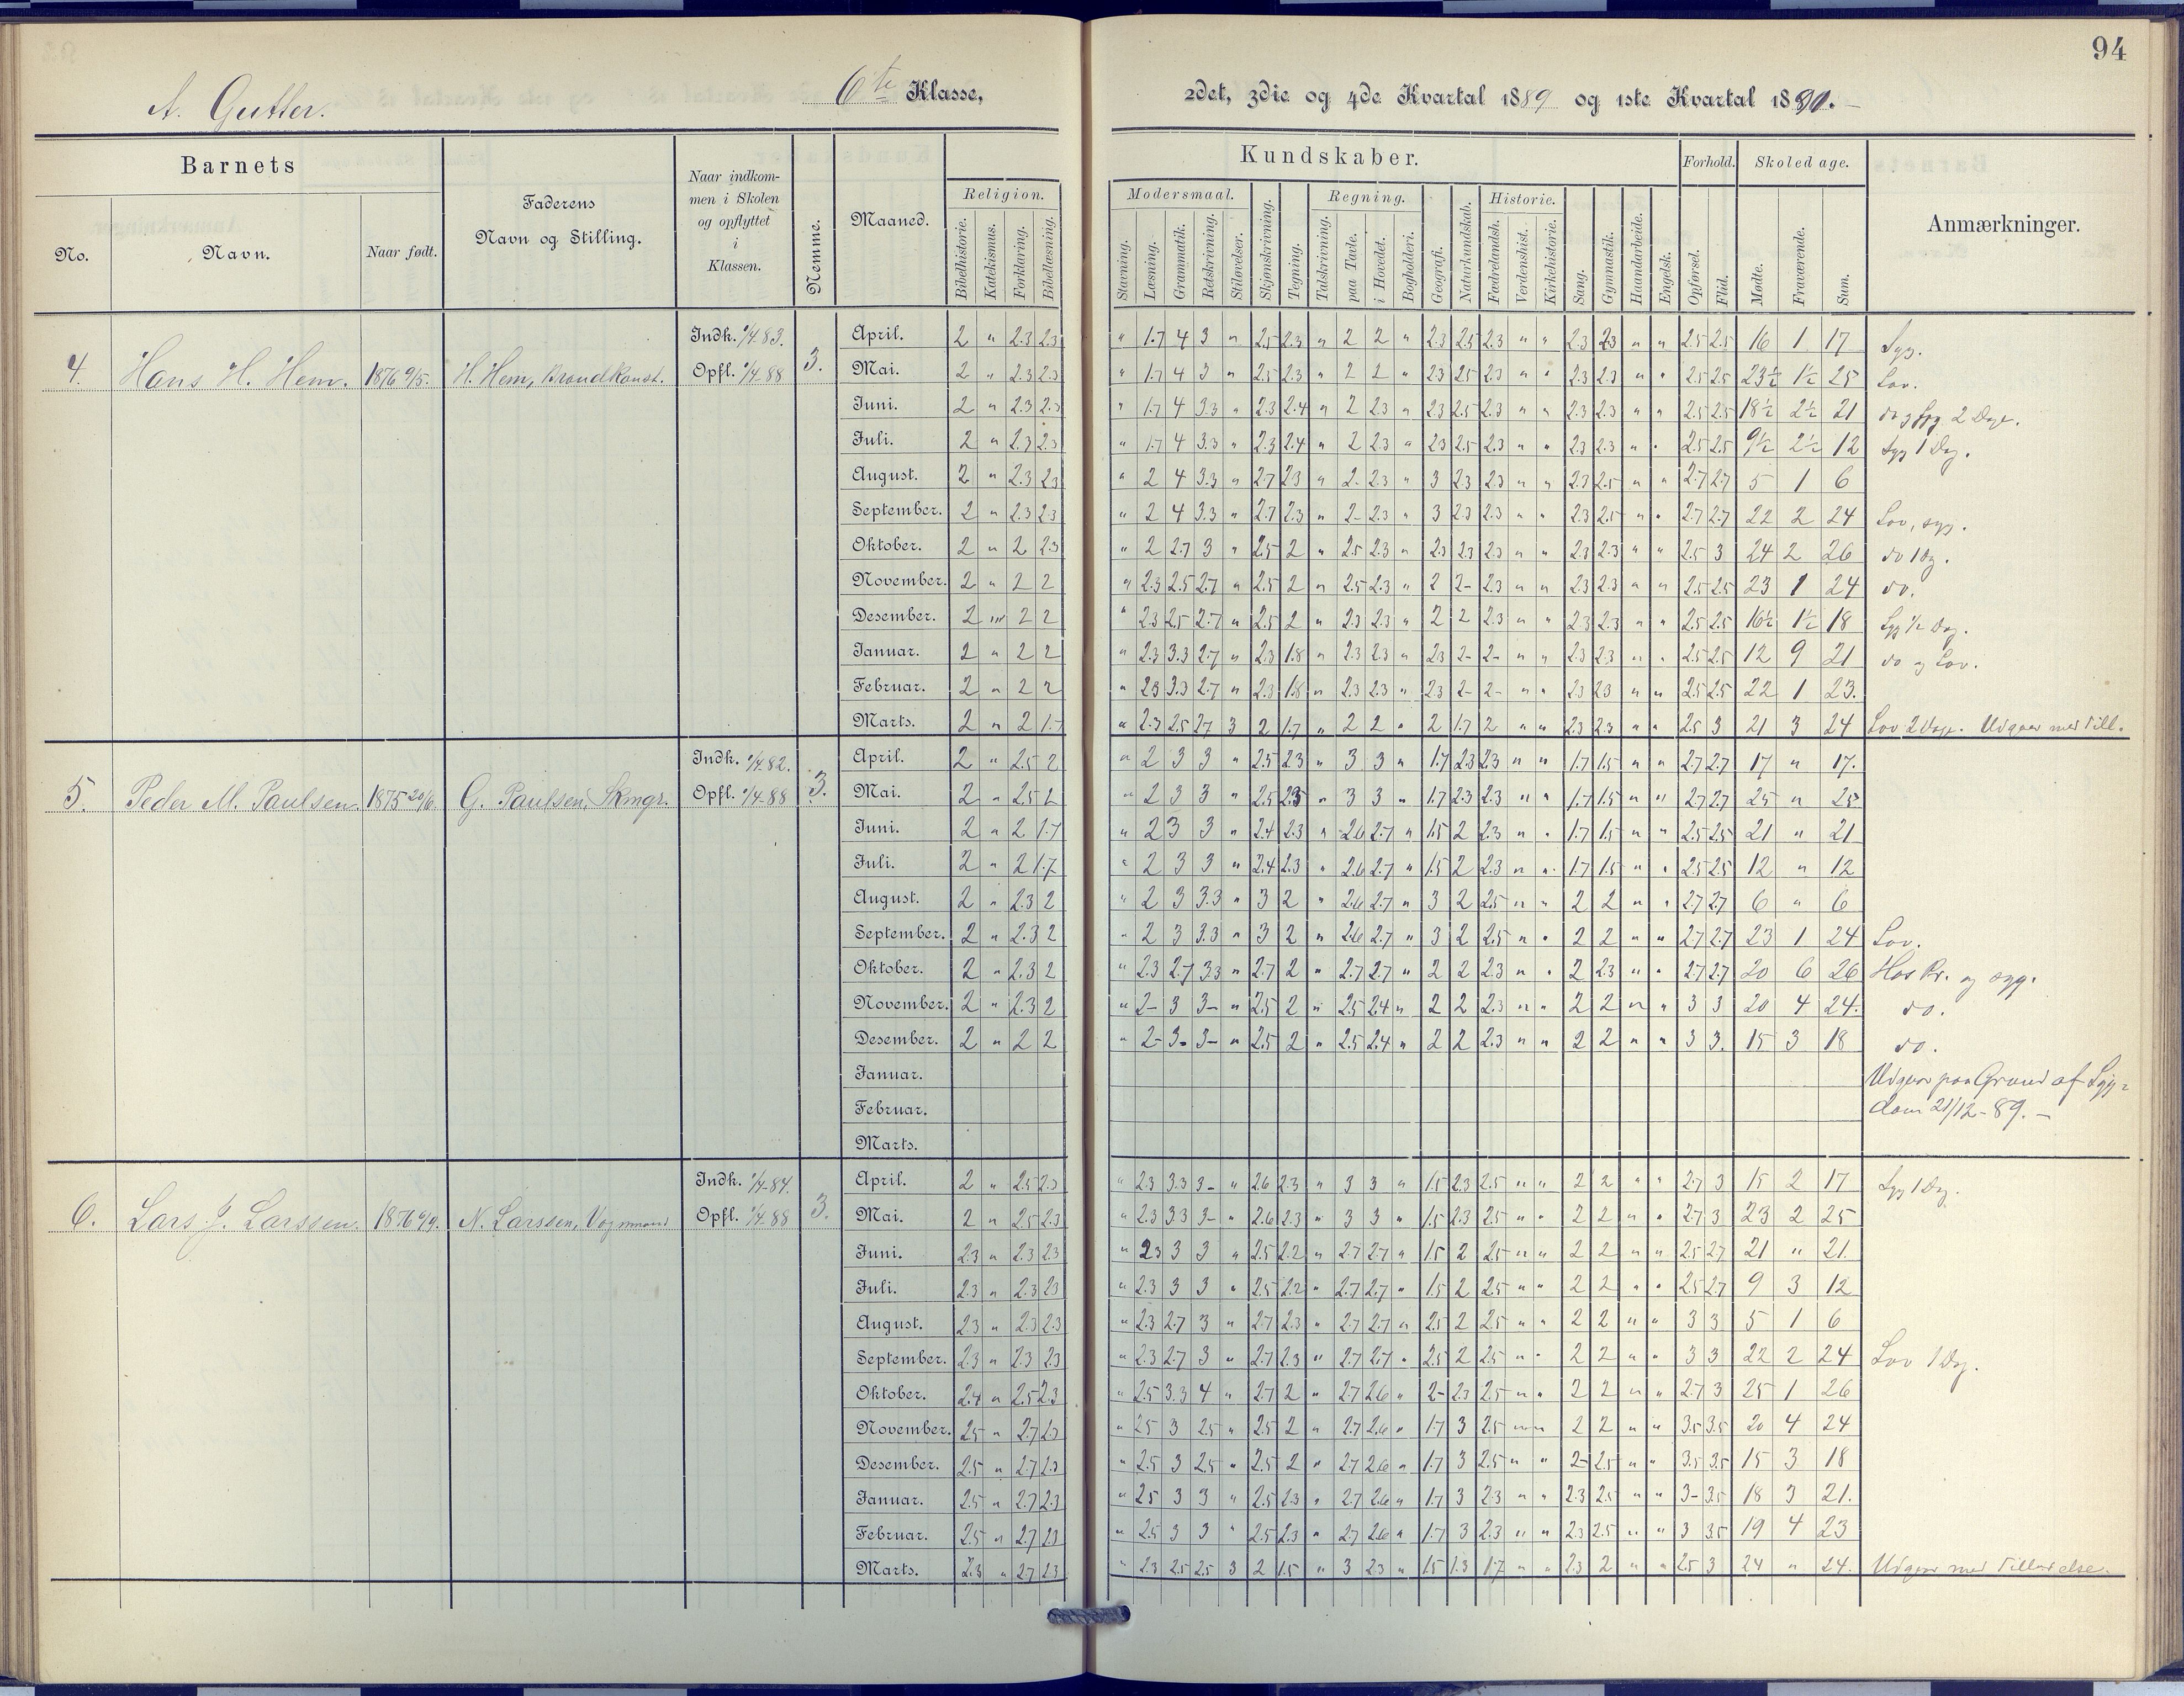 94
A. Gutter.
6te Klasse,
2det, 3die og 4de Kvartal 1889 og 1ste Kvartal 1890.
Barnets
Faderens Navn og Stilling.
Naar indkommen i Skolen og opflyttet i Klassen.
Nemme.
Maaned.
Kundskaber.
Forhold.
Skoledage.
Anmærkninger.
No.
Navn.
Naar født.
Religion.
Bibelhistorie.
Katekismus.
Forklaring.
Bibellæsning.
Modersmaal.
Stavning.
Læsning.
Grammatik.
Retskrivning.
Stiløvelser.
Skjønskrivning.
Tegning.
Regning.
Talskrivning.
paa Tavle.
i Hovedet.
Bogholderi.
Geografi.
Naturkundskab.
Historie.
Fædrelandsh.
Verdenshist.
Kirkehistorie.
Sang.
Gymnastik.
Haandarbeide.
Engelsk.
Opførsel.
Flid.
Mødte.
Fraværende.
Sum.
4. Hans H. Hem. 1876 9/5. H. Hem, Brandkonst. Indk. 1/4 83. Opfl. 1/4 88 3.
April. 2 " 2.3 2.3 " 1.7 4 3 " 2.5 2.3 " 2 2 " 2.3 2.5 2.3 " " 2.3 2.3 " " 2.5 2.5 16 1 17 Syg.
Mai. 2 " 2.3 2.3 " 1.7 4 3 " 2.5 2.3 " 2 2 " 2.3 2.5 2.3 " " 2.3 2.3 " " 2.5 2.5 23½ 1½ 25 Lov.
Juni. 2 " 2.3 2.3 " 1.7 4 3.3 " 2.3 2.4 " 2 2.3 " 2.3 2.5 2.3 " " 2.3 2.3 " " 2.5 2.5 18½ 2½ 21 do og Syg 2 Dage.
Juli. 2 " 2.3 2.3 " 1.7 4 3.3 " 2.3 2.4 " 2 2.3 " 2.3 2.5 2.3 " " 2.3 2.3 " " 2.5 2.5 9½ 2½ 12 Syg 1 Dag.
August. 2 " 2.3 2.3 " 2 4 3.3 " 2.7 2.3 " 2- 2.3 " 3 2.3 2.3 " " 2.3 2.5 " " 2.7 2.7 5 1 6
September. 2 " 2.3 2.3 " 2 4 3.3 " 2.7 2.3 " 2- 2.3 " 3 2.3 2.3 " " 2.3 2.5 " " 2.7 2.7 22 2 24 Lov, syg.
Oktober. 2 " 2 2.3 " 2 2.7 3 " 2.5 2 " 2.5 2.3 " 2.3 2.3 2.3 " " 2.3 2.3 " " 2.5 3 24 2 26 do 1 Dg.
November. 2 " 2 2 " 2.3 2.5 2.7 " 2.5 2 " 2.5 2.3 " 2 2- 2.3 " " 2.3 2.3 " " 2.5 2.5 23 1 24 do.
Desember. 2 " 2 2 " 2.3 2.5 2.7 " 2.5 2 " 2.3 2.3 " 2 2 2.3 " " 2.3 2.3 " " 2.5 2.5 16½ 1½ 18 Syg ½ Dag.
Januar. 2 " 2 2 " 2.3 3.3 2.7 " 2.3 1.8 " 2.3 2.3 " 2.3 2- 2- " " 2.3 2.3 " " 2.5 2.5 12 9 21 do og Lov.
Februar. 2 " 2 2 " 2.3 3.3 2.7 " 2.3 1.8 " 2.3 2.3 " 2.3 2- 2- " " 2.3 2.3 " " 2.5 2.5 22 1 23.
Marts. 2 " 2 1.7 " 2.3 2.5 2.7 3 2 1.7 " 2 2 " 2 1.7 2 " " 2.3 2.3 " " 2.5 3 21 3 24 Lov 2 Dage. Udgaar med Till.
5. Peder M. Paulsen. 1875 20/6. G. Paulsen, Skmgr. Indk. 1/4 82. Opfl. 1/4 88 3.
April. 2 " 2.5 2 " 2 3 3 " 2.5 2.3 " 3 3 " 1.7 2.3 2.3 " " 1.7 1.5 " " 2.7 2.7 17 " 17.
Mai. 2 " 2.5 2 " 2 3 3 " 2.5 2.3 " 3 3 " 1.7 2.3 2.3 " " 1.7 1.5 " " 2.7 2.7 25 " 25
Juni. 2 " 2 1.7 " 2 3 3 " 2.4 2.3 " 2.6 2.7 " 1.5 2 2.3 " " 1.7 1.5 " " 2.5 2.5 21 " 21
Juli. 2 " 2 1.7 " 2 3 3 " 2.4 2.3 " 2.6 2.7 " 1.5 2 2.3 " " 1.7 1.5 " " 2.5 2.5 12 " 12
August. 2 " 2.3 2 " 2 3 3.3 " 3 2 " 2.6 2.7 " 3 2 2.5 " " 2 2 " " 2.7 2.7 6 " 6
September. 2 " 2.3 2 " 2 3 3.3 " 3 2 " 2.6 2.7 " 3 2 2.5 " " 2 2 " " 2.7 2.7 23 1 24 Lov.
Oktober. 2 " 2.3 2 " 2.3 2.7 3.3 " 2.7 2 " 2.7 2.7 " 2 2 2.3 " " 2 2.3 " " 2.7 2.7 20 6 26 Hos Pr. og syg.
November. 2 " 2.3 2 " 2- 3 3- " 2.5 2 " 2.5 2.4 " 2 2 2.3 " " 2 2 " " 3 3 20 4 24. do.
Desember. 2 " 2 2 " 2- 3- 3- " 2.5 2 " 2.5 2.4 " 2 2 2.3 " " 2 2 " " 3 3. 15 3 18 do.
Januar. Udgaar paa Grund af Syg=
Februar. dom 21/12-89.-
Marts.
6. Lars J. Larssen. 1876 6/9. N. Larssen, Vognmand Indk. 1/4-84. Opfl. 1/4 88 3.
April. 2 " 2.5 2.3 " 2.3 3.3 3- " 2.6 2.3 " 3 3 " 1.5 2.3 2.5 " " 2 2 " " 2.7 3 15 2 17 Syg 1 Dag.
Mai. 2 " 2.5 2.3 " 2.3 3.3 3- " 2.6 2.3 " 3 3 " 1.5 2.3 2.5 " " 2 2 " " 2.7 3 23 2 25
Juni. 2.3 " 2.3 2.3 " 2.3 3 3 " 2.5 2.2 " 2.7 2.7 " 1.5 2 2.5 " " 2 2 " " 2.5 2.7 21 " 21.
Juli. 2.3 " 2.3 2.3 " 2.3 3 3 " 2.5 2.2 " 2.7 2.7 " 1.5 2 2.5 " " 2 2 " " 2.5 2.7 9 3 12
August. 2.3 " 2.3 2.3 " 2.3 2.7 3 " 2.7 2.3 " 2.7 2.7 " 2.5 2 2.5 " " 2 2 " " 3 3 5 1 6
September. 2.3 " 2.3 2.3 " 2.3 2.7 3 " 2.7 2.3 " 2.7 2.7 " 2.5 2 2.5 " " 2 2 " " 3 3 22 2 24 Lov 1 Dag.
Oktober. 2.4 " 2.5 2.3 " 2.5 3.3 4 " 2.7 2 " 2.7 2.6 " 2- 2.3 2.5 " " 2 2 " " 2.7 3 25 1 26
November. 2.5 " 2.7 2.3 " 2.5 3 2.5 " 2.5 2 " 2.7 2.6 " 1.7 3 2.5 " " 2 2 " " 3.5 3.5 20 4 24
Desember. 2.5 " 2.7 2.3 " 2.5 3 2.5 " 2.5 2 " 2.7 2.6 " 1.7 3 2.5 " " 2- 2.5 " " 3.5 3.5 15 3 18
Januar. 2.5 " 2.7 2.3 " 2.5 3 3 " 2.5 2.3 " 2.7 2.6 " 1.7 3 2.3 " " 2.3 2.5 " " 3- 3.5 18 3 21.
Februar. 2.5 " 2.7 2.3 " 2.5 3 3 " 2.5 2.3 " 2.7 2.6 " 1.7 3 2.3 " " 2.3 2.5 " " 3 3.5 19 4 23
Marts. 2.3 " 2.7 2.3 " 2.3 2.5 2.5 3 2 1.5 " 3 2.3 " 1.5 1.3 1.7 " " 2.3 2 " " 2.5 3 24 " 24. Udgaar med Tilladelse.